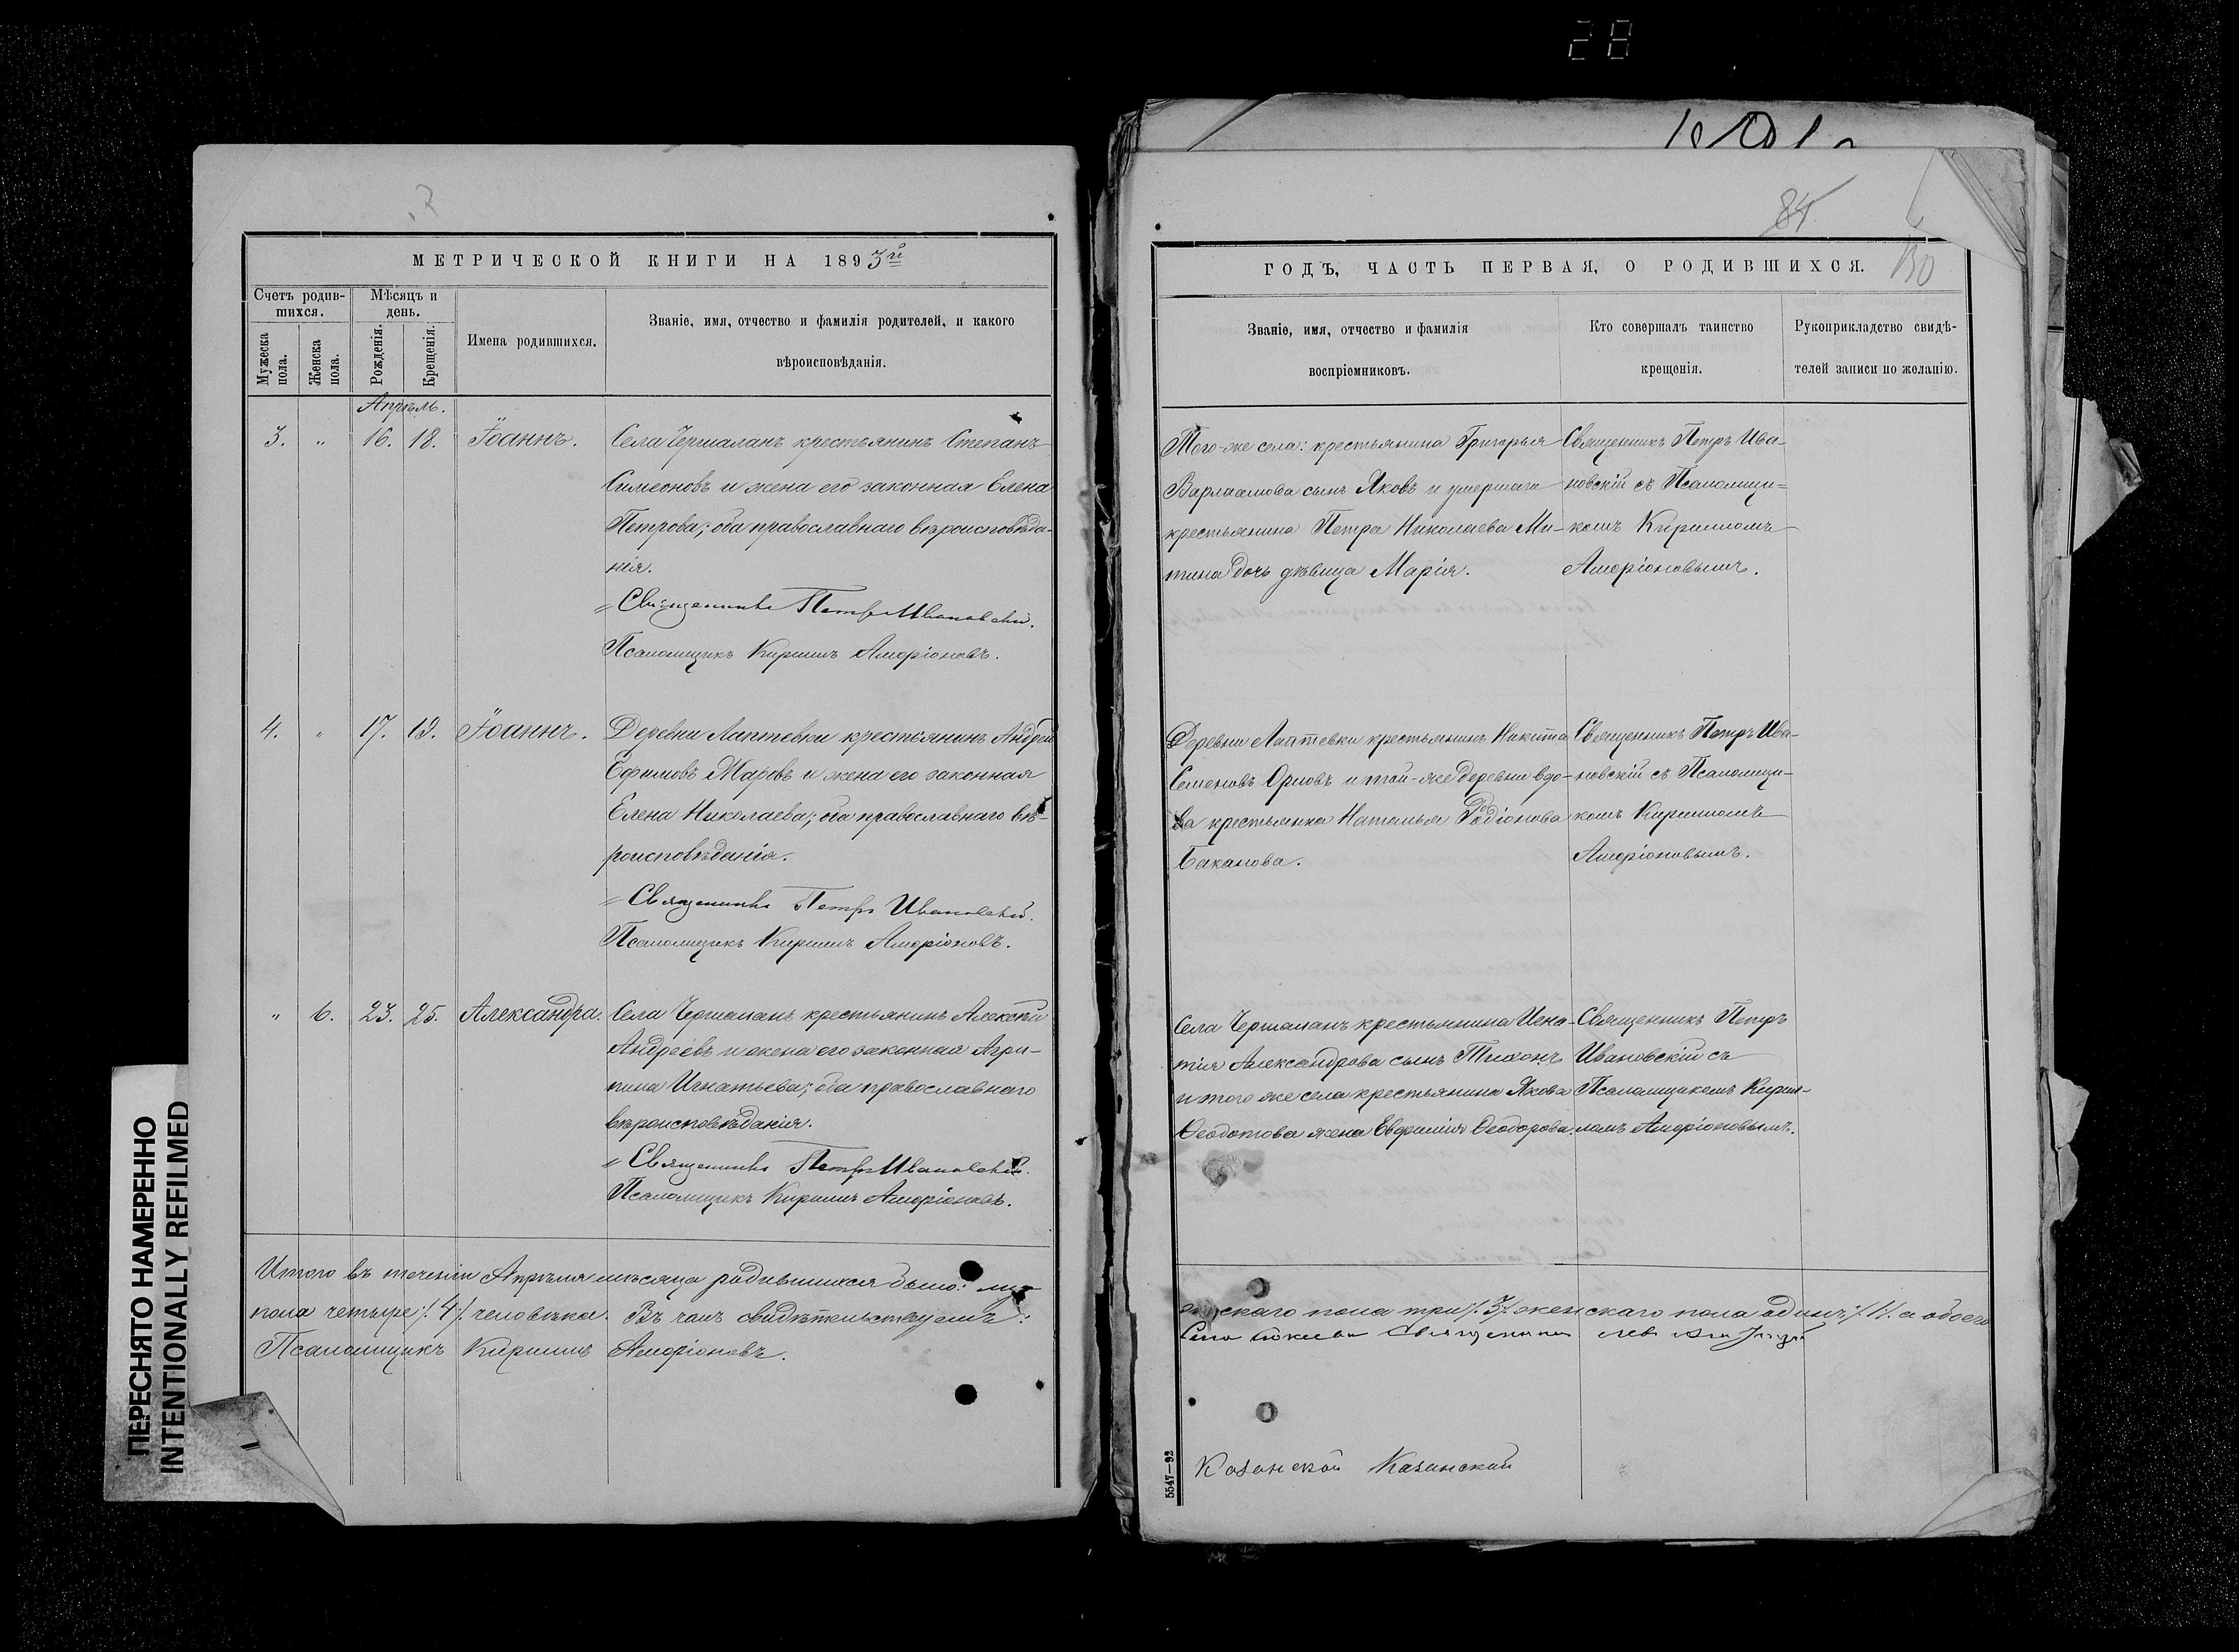 28
84
МЕТРИЧЕСКОЙ КНИГИ НА 1893й
Счетъ родив-
шихся.
Мѣсяцъ и
день.
Мужеска
пола.
Женска
пола.
Рожденія.
Крещенія.
Имена родившихся.
Званіе, имя, отчество и фамилія родителей, и какого
вѣроисповѣданія.
Апрѣль.
3. „ 16. 18. Іоаннъ. Села Чершаланъ крестьянинъ Степанъ
Симеоновъ и жена его законная Елена
Петрова; оба православнаго вѣроисповѣда-
нія.
Священникъ Петръ Ивановскій.
Псаломщикъ Кириллъ
4. „ 17. 19. Іоаннъ. Деревни Лаптевки крестьянинъ Андрей
Ефимовъ Маровъ и жена его законная
Елена Николаева; оба православнаго вѣ-
роисповѣданія.
Священникъ Петръ Ивановскій.
Псаломщикъ Кириллъ
„ 6. 23. 25. Александра. Села Чершаланъ крестьянинъ Алексѣй
Андреевъ и жена его законная Агри-
пина Игнатьева; оба православнаго
вѣроисповѣданія.
Священникъ Петръ Ивановскій.
Псаломщикъ Кириллъ
Итого въ теченіи Апрѣля мѣсяца родившихся было: му-
пола четыре /.4/. человѣка. Въ чемъ свидѣтельствуемъ:
Псаломщикъ Кириллъ
ГОДЪ, ЧАСТЬ ПЕРВАЯ, О РОДИВШИХСЯ.
130
Званіе, имя, отчество и фамилія
воспріемниковъ.
Кто совершалъ таинство
крещенія.
Рукоприкладство свидѣ-
телей записи по желанію.
Того-же села: крестьянина Григорья
Варлаамова сынъ Яковъ и умершаго
крестьянина Петра Николаева Ми-
тина дочь дѣвица Марія.
Священникъ Петръ Ива-
новскій съ Псаломщи-
комъ Кирилломъ
Деревни Лаптевки крестьянинъ Никита
Семеновъ Орловъ и той-же деревни вдо-
ва крестьянка Наталья Родіонова
Баканова.
Священникъ Петръ Ива-
новскій съ Псаломщи-
комъ Кирилломъ
Села Чершаланъ крестьянина Игна-
тія Александрова сынъ Тихонъ
и того же села крестьянина Якова
Ѳеодотова жена Евфимія Ѳеодорова.
Священникъ Петръ
Ивановскій съ
Псаломщикомъ Кирил-
ломъ
жскаго пола три /.3/. женскаго пола одинъ /.1/. а обоего
Священникъ
Казанской Казанской
5547—92
ПЕРЕСНЯТО НАМЕРЕННО
INTENTIONALLY REFILMED